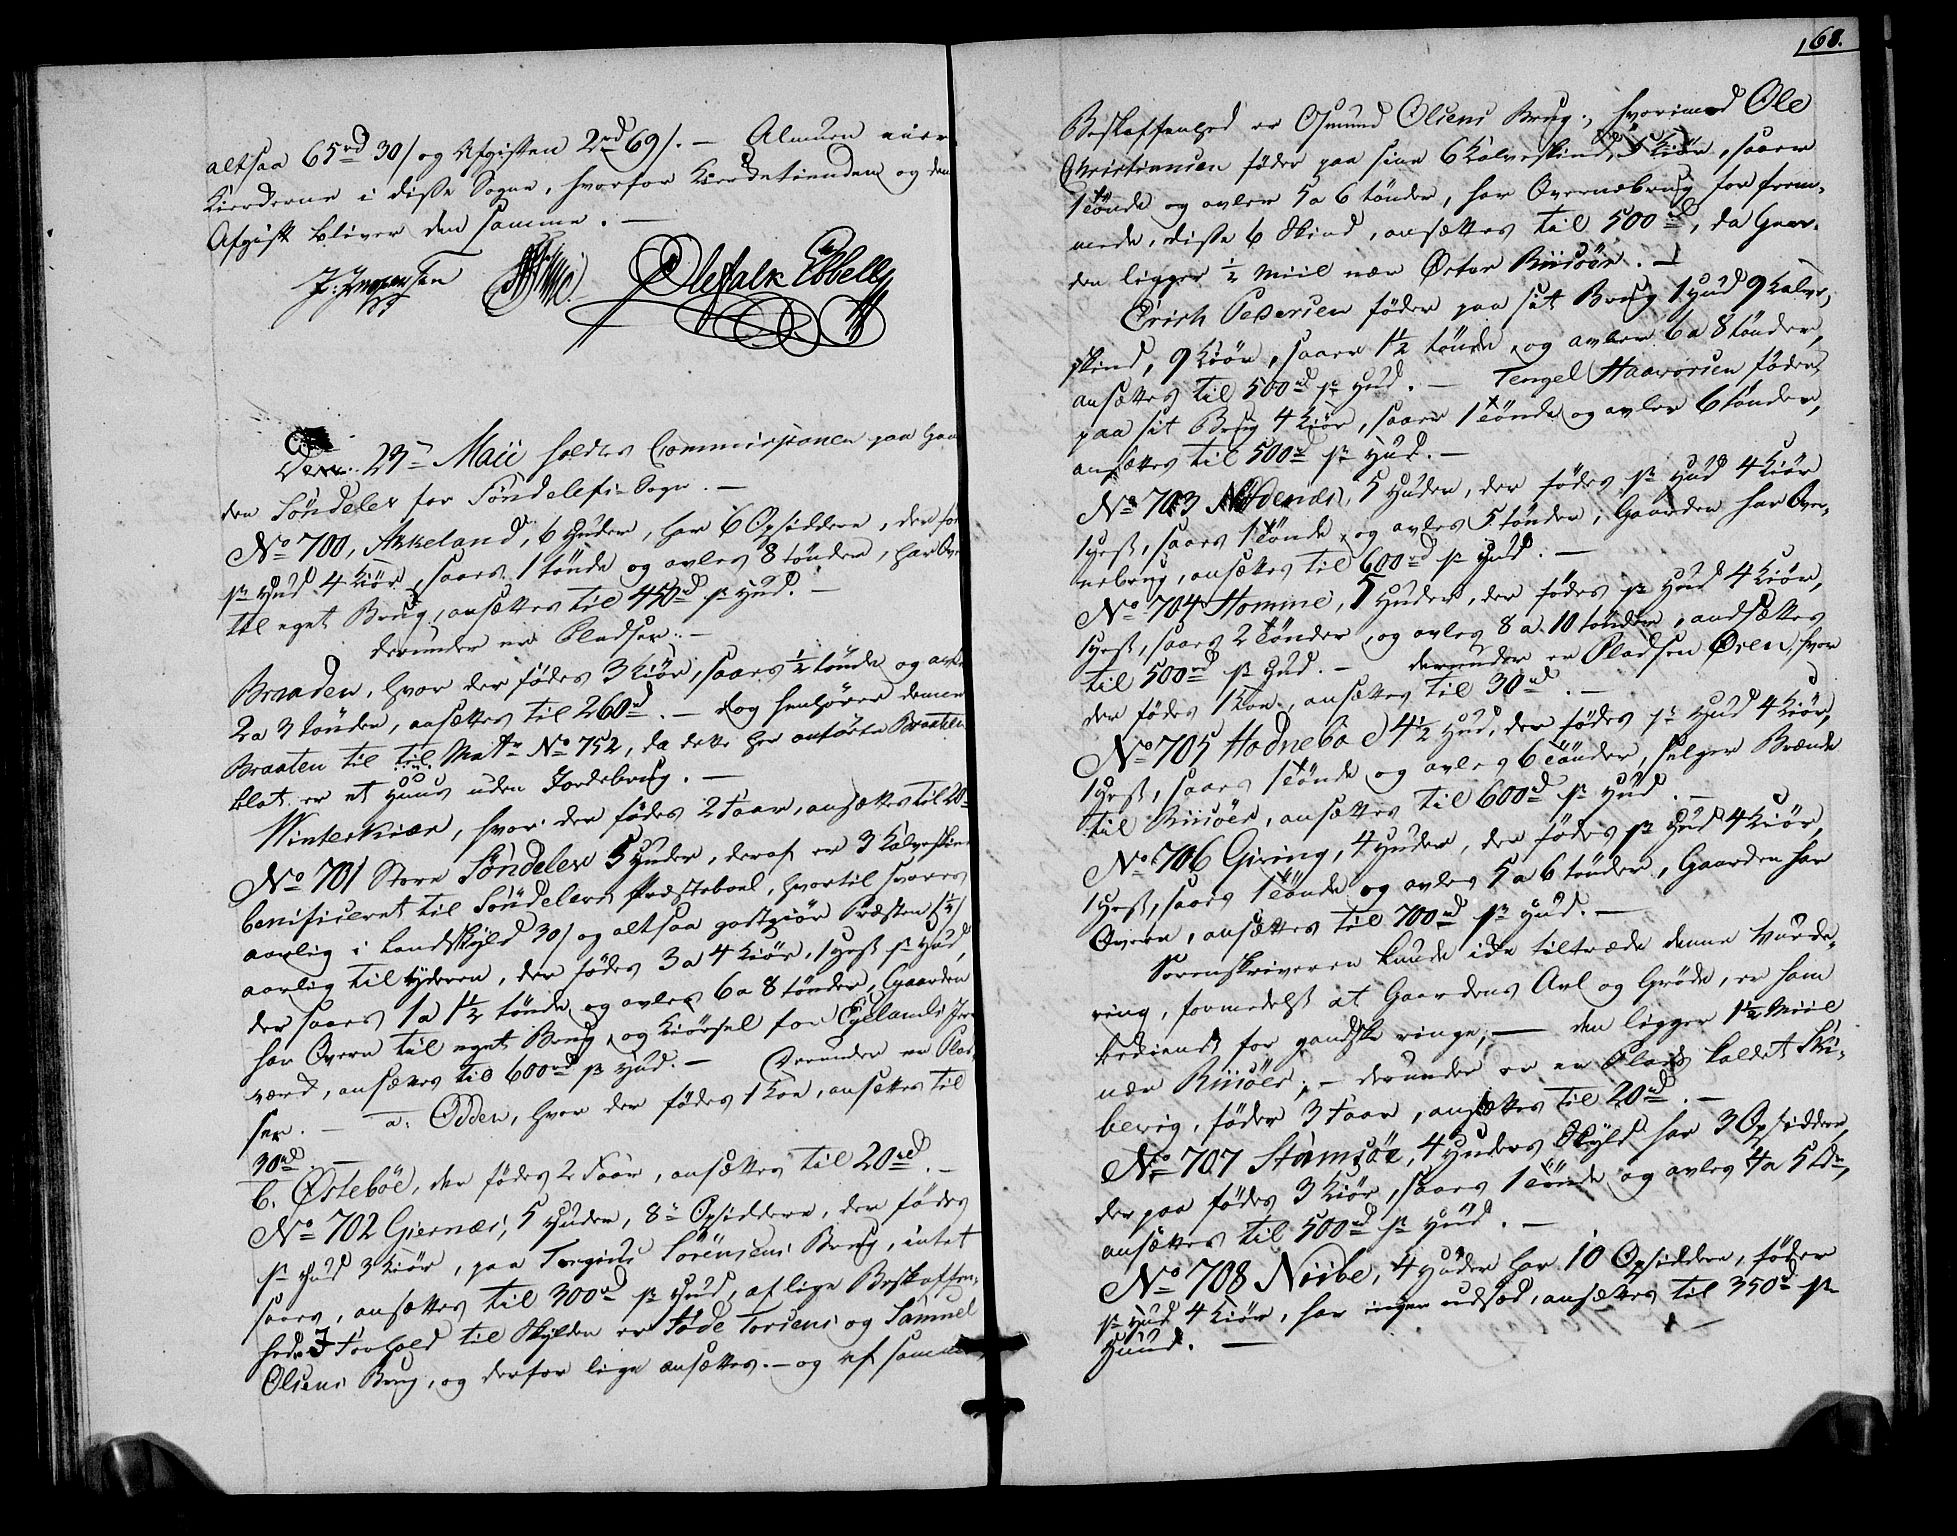 altsaa 65rd 30/ og Afgiften 2rd 69/. — Almuen eier
Kierkerne i disse Sogne, hvorfor Kierketienden og den
Afgift bliver den samme. —
J: Jørgensen Ole Falk Ebbell
Den 23de Maii holdtes Commissionen paa Gaar
den Søndeler for Søndelefs Sogn. —
No 700, Akkeland, 6 Huder, har 6 Opsiddere, der fø
pr Hud 4 Kiør, saaes 1 tønde og avles 8 tønder, har Ov
til eget Brug, ansættes til 450rd pr Hud. —
derunder er Pladser. —
Braaden, hvor der fødes 3 Kiør, saaes ½ tønde og avle
2 a 3 tønder, ansættes til 260rd. — dog henhører denne
Braaten til til Matr No 752, da dette her anførte Braaten
blot er et Huus uden Jordebrug. —
Winterkiær, hvor der fødes 2 Faar, ansættes til 20rd
No 701 Store Søndeler 5 Huder, deraf er 3 Kalveskind
benificeret til Søndelers Præsteboel, hvortil svares
aarlig i Landskyld 30/ og altsaa godtgiør Præsten
aarlig tilyderen, der fødes 3 a 4 Kiør, 1 Hest pr Hud,
der saaes 1 a 1½ tønde og avles 6 a 8 tønder, Gaarden
har Overn til eget Brug, og Kiørsel for Egelands Jer
værk, ansættes til 600rd pr Hud. — Derunder er Plad
ser. — a: Odden, hvor der fødes 1 Koe, ansættes til
30rd. —
b. Østebøe, der fødes 2 Faar, ansættes til 20rd. —
No 702 Giernæs, 5 Huder, 8te Opsiddere, der fødes
pr Hud 3 Kiør, paa Torgius Sørensens Brug, intet
saaes, ansættes til 300rd pr Hud, af lige Beskaffen-
hed i Forhold til Skylden er Føde Torsens og Samuel
Olsens Brug, og derfor lige ansættes. — og af samme
168.
Beskaffenhed er Osmund Olsens Brug; hvorimod Ole
Christensen føder paa sine 6 Kalveskind 5 Kiør, saaer
1 tønde og avler 5 a 6 tønder, har Overnebrug for frem-
mede, disse 6 Skind, ansættes til 500rd, da Gaar-
den ligger ½ Miil nær Øster Riisøer. —
Erich Pedersen føder paa sit Brug 1 Hud 9 Kalve-
skind, 9 Kiør, saaer 1½ tønde, og avler 6 a 8 tønder,
ansættes til 500rd pr Hud. — Tengel Haavorsen føder
paa sit Brug 4 Kiør, saaer 1 tønde og avler 6 tønder,
ansættes til 500rd pr Hud. —
No 703 Nødenæs, 5 Huder, der fødes pr Hud 4 Kiør
1 Hest, saaes 1 tønde, og avles 5 tønder, Gaarden har Over-
nebrug, ansættes til 600rd pr Hud. —
No 704 Homme, 5 Huder, der fødes pr Hud 4 Kiør,
1 Hest, saaes 2 tønder, og avles 8 a 10 tønder, andsættes
til 500rd pr Hud. — derunder er Pladsen Øren, hvor
der fødes 1 Koe, ansættes til 30rd. —
No 705 Hodnebøe 4½ Hud, der fødes pr Hud 4 Kiør,
1 Hest, saaes 1 tønde og avles 6 tønder, selger Brænde
til Riisøer, ansættes til 600rd pr Hud. —
No 706 Giring, 4 Huder, der fødes pr Hud 4 Kiør,
1 Hest, saaes 1 tønde og avles 5 a 6 tønder, Gaarden har
Overn, ansættes til 700rd pr Hud. —
Sorenskriveren kunde ikke tiltræde denne Vurde-
ring, formedelst at Gaardens Avl og Grøde, er ham
bediendt for gandske ringe; — den ligger 1½ Miil
nær Riisøer; — derunder er en Plads kaldet Ski-
bevig, føder 3 Faar, ansættes til 20rd. —
No 707 Stamsøe, 4 Huders Skyld har 3 Opsiddere,
der paa fødes 3 Kiør, saaes 1 tønde og avles 4 a 5 tdr,
ansættes til 500rd pr Hud. —
No 708 Nibe, 4 Huder har 10 Opsiddere, føder
pr Hud 4 Kiør, har ingen udsæd, ansættes til 350rd pr
Huud. —